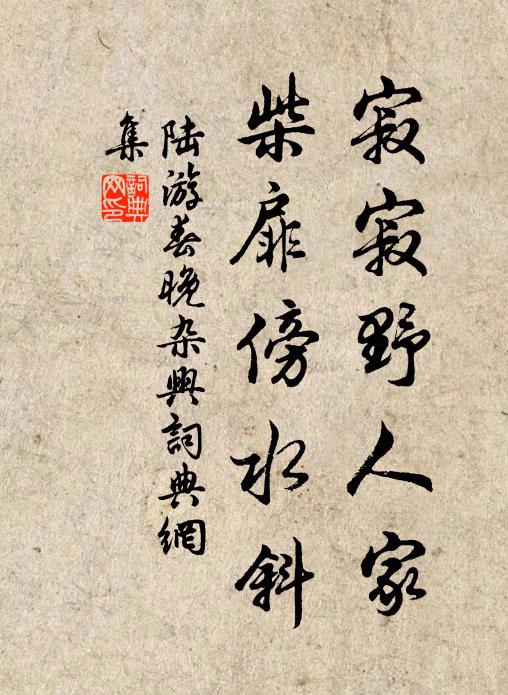 寂寂野人家
柴扉傍水斜
陆游春晚杂興詞典網
集
詞典
网印